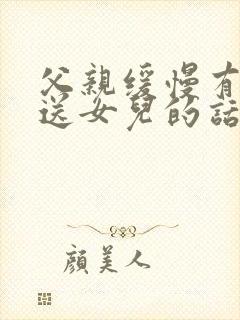 父親緩慢有
送女兒的話
顔美人